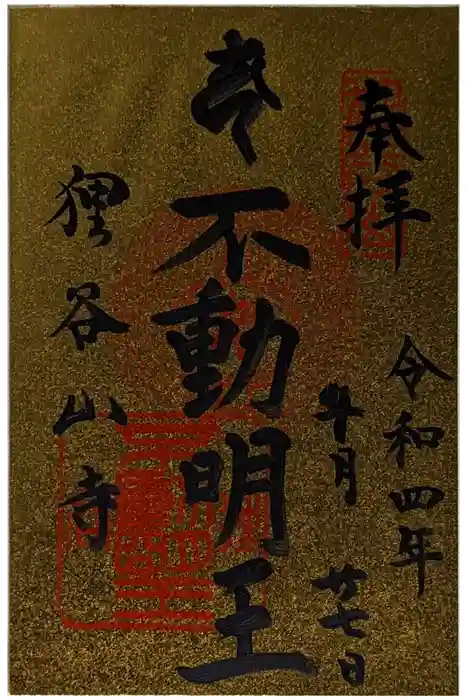 奉拝
令和四年
年月
廿七日
不動明王
狸谷山寺